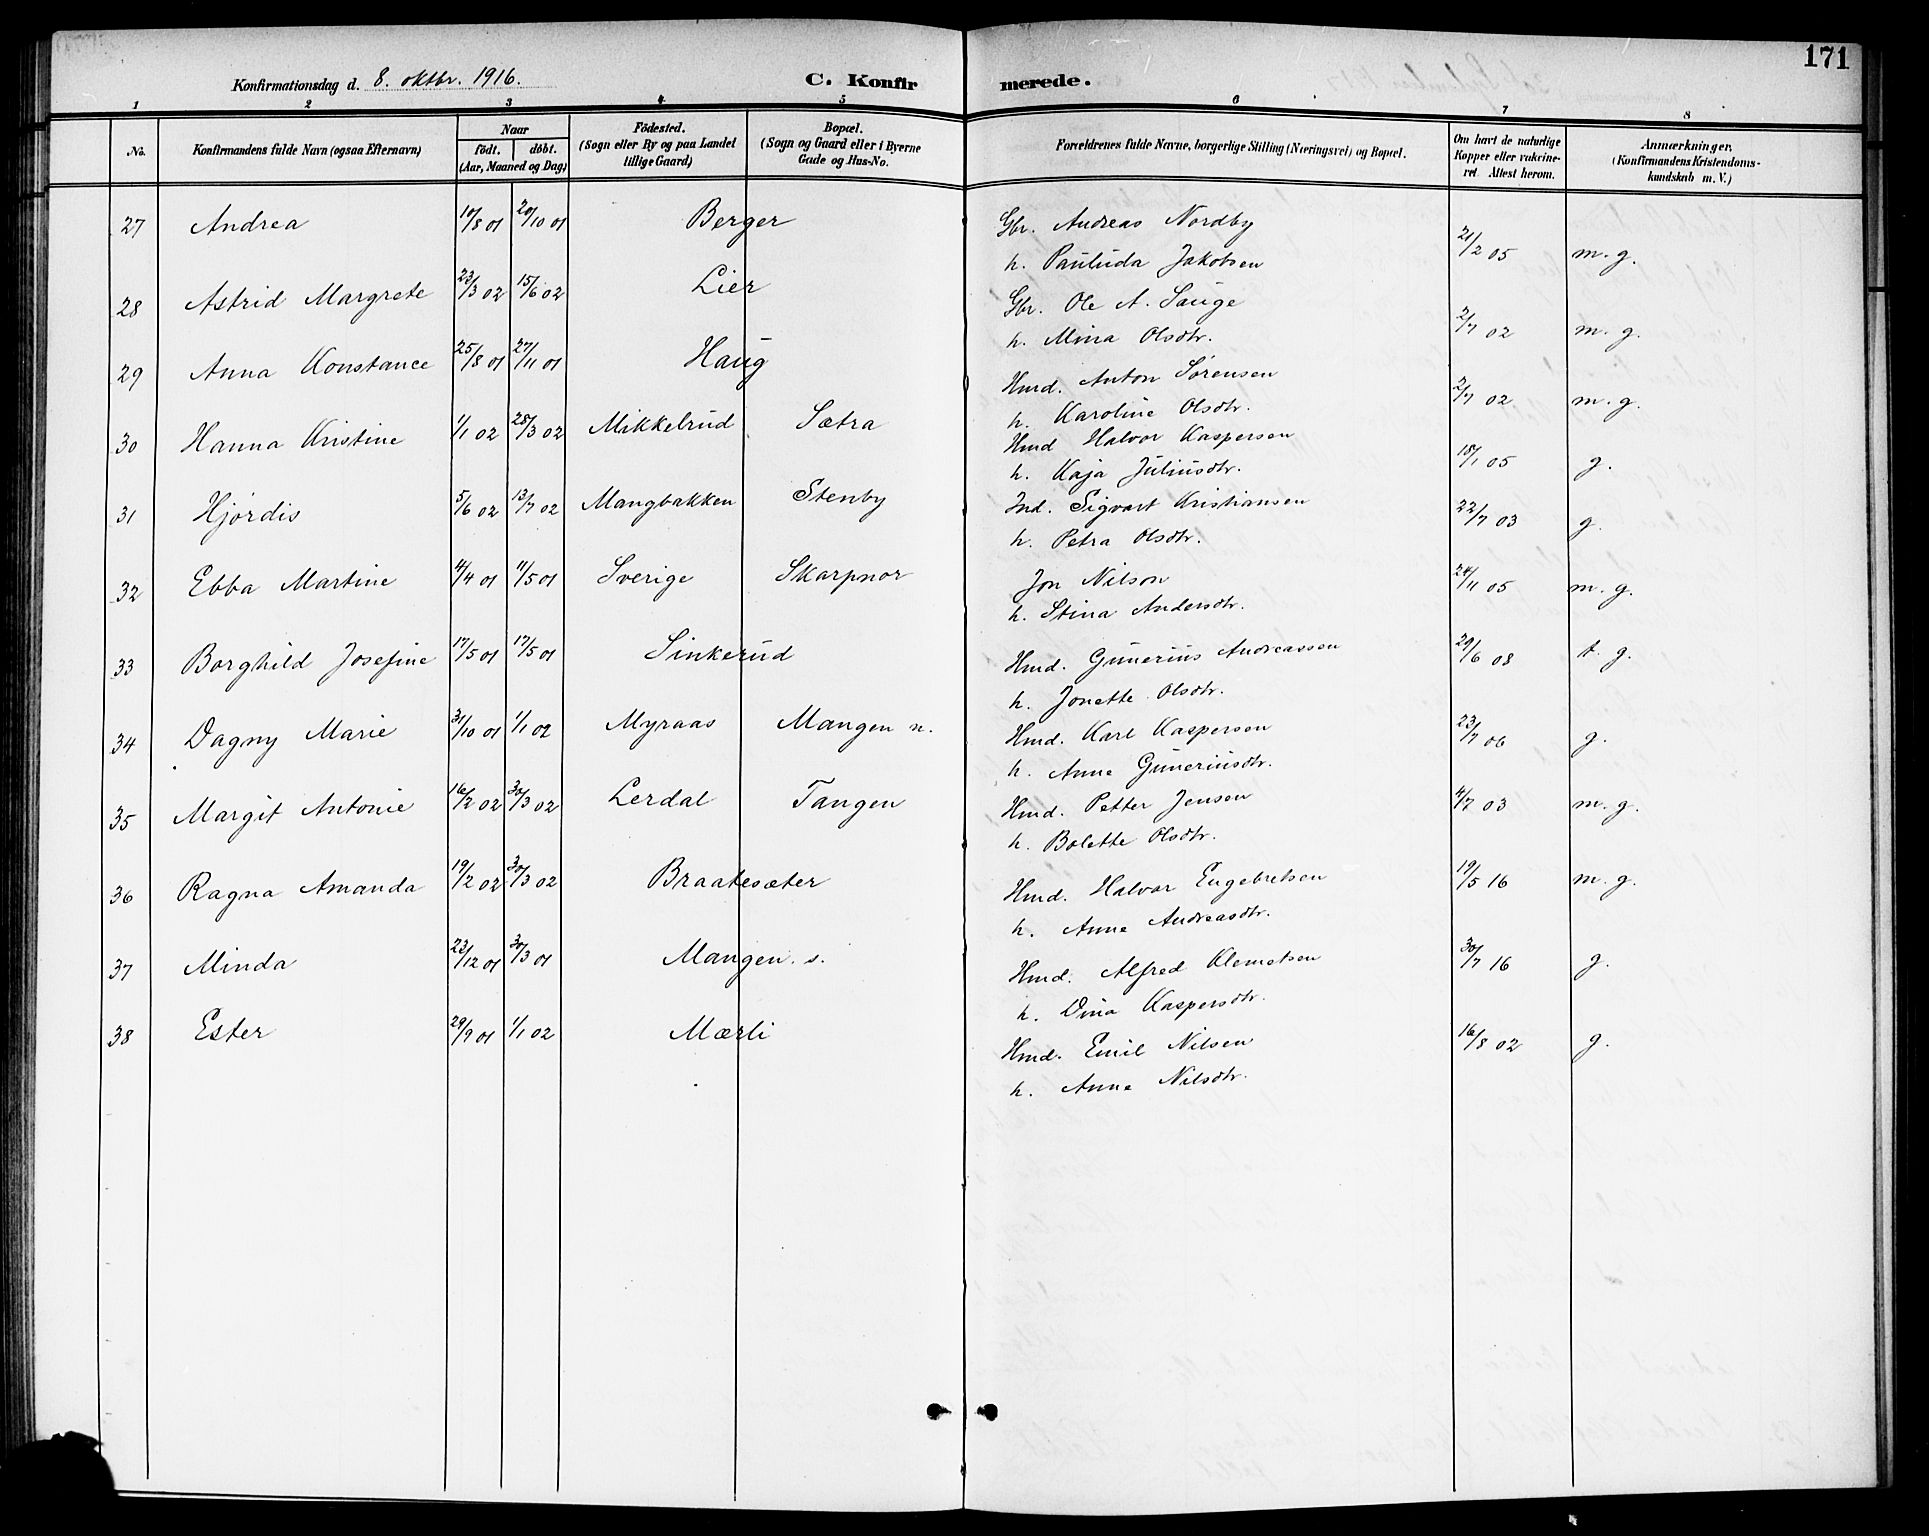 171
Konfirmationsdag d. 8. oktbr. 1916. C. Konfirmerede.
1 2 3 4 5 6 7 8
No. Konfirmandens fulde Navn (ogsaa Efternavn) Naar födt. döbt. (Aar, Maaned og Dag) Födested. (Sogn eller By og paa Landet tillige Gaard) Bopæl. (Sogn og Gaard eller i Byerne Gade og Hus-No. Forældrenes fulde Navne, borgerlige Stilling (Næringsvei) og Bopæl. Om havt de naturlige Kopper eller vakcineret Attest herom. Anmærkninger. (Konfirmandens Kristendomskundskab m. V.)
27 Andrea 10/8 01 20/10 01 Berger Gbr. Andreas Nordby 21/2 05 m. g.
h. Paulida Jakobsen
28 Astrid Margrete 23/3 02 15/6 02 Lier Gbr. Ole A. Sauge 2/7 02 m. g.
h. Mina Olsdtr.
29 Anna Konstance 25/8 01 27/11 01 Haug Hmd. Anton Sørensen 2/7 02 m. g.
h. Karoline Olsdtr.
30 Hanna Kristine 1/1 02 28/3 02 Mikkelrud Sætra Hmd Halvor Kaspersen 18/1 05 g.
h. Kaja Juliusdtr.
31 Hjørdis 5/6 02 13/7 02 Mangbakken Stenby Ind. Sigvart Kristiansen 22/7 03 g.
h. Petra Olsdtr.
32 Ebba Martine 4/4 01 11/5 01 Sverige Skarpnor Jon Nilson 24/11 05 m. g.
h. Stina Andersdtr.
33 Borghild Josefine 17/5 01 17/5 01 Sinkerud Hmd. Gunerius Andreassen 29/6 08 t. g.
h. Jonette Olsdtr.
34 Dagny Marie 31/10 01 1/1 02 Myraas Mangen n. Hmd. Karl Kaspersen 23/7 06 g.
h. Anne Guneriusdtr.
35 Margit Antonie 16/2 02 30/3 02 Lerdal Tangen Hmd. Petter Jensen 4/7 03 m. g.
h. Bolette Olsdtr.
36 Ragna Amanda 19/2 02 30/3 02 Braatesæter Hmd. Halvor Engebretsen 19/5 16 m. g.
h. Anne Andreasdtr.
37 Minda 23/12 01 30/3 01 Mangen. s. Hmd. Alfred Klemetsen 30/7 16 g.
h. Dina Kaspersdtr.
38 Ester 29/9 01 1/1 02 Mærli Hmd. Emil Nilsen 16/8 02 g.
h. Anne Nilsdtr.